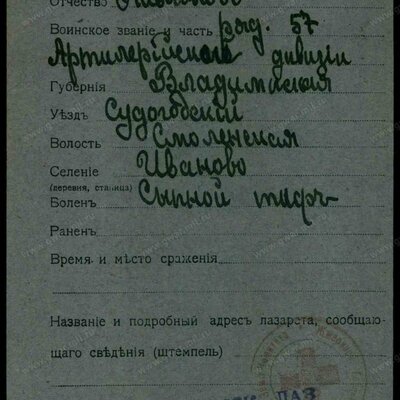 Отчество
Воинское званіе и часть ряд. 57
Артилерійской дивизіи
Губернія Владимиская
Уѣздъ Судогодский
Волость Смоленская
Селеніе Иваново
(деревня, станица)
Боленъ Сыпной тифъ
Раненъ
Время и мѣсто сраженія
Названіе и подробный адресъ лазарета, сообщаю-
щаго свѣдѣнія (штемпель)